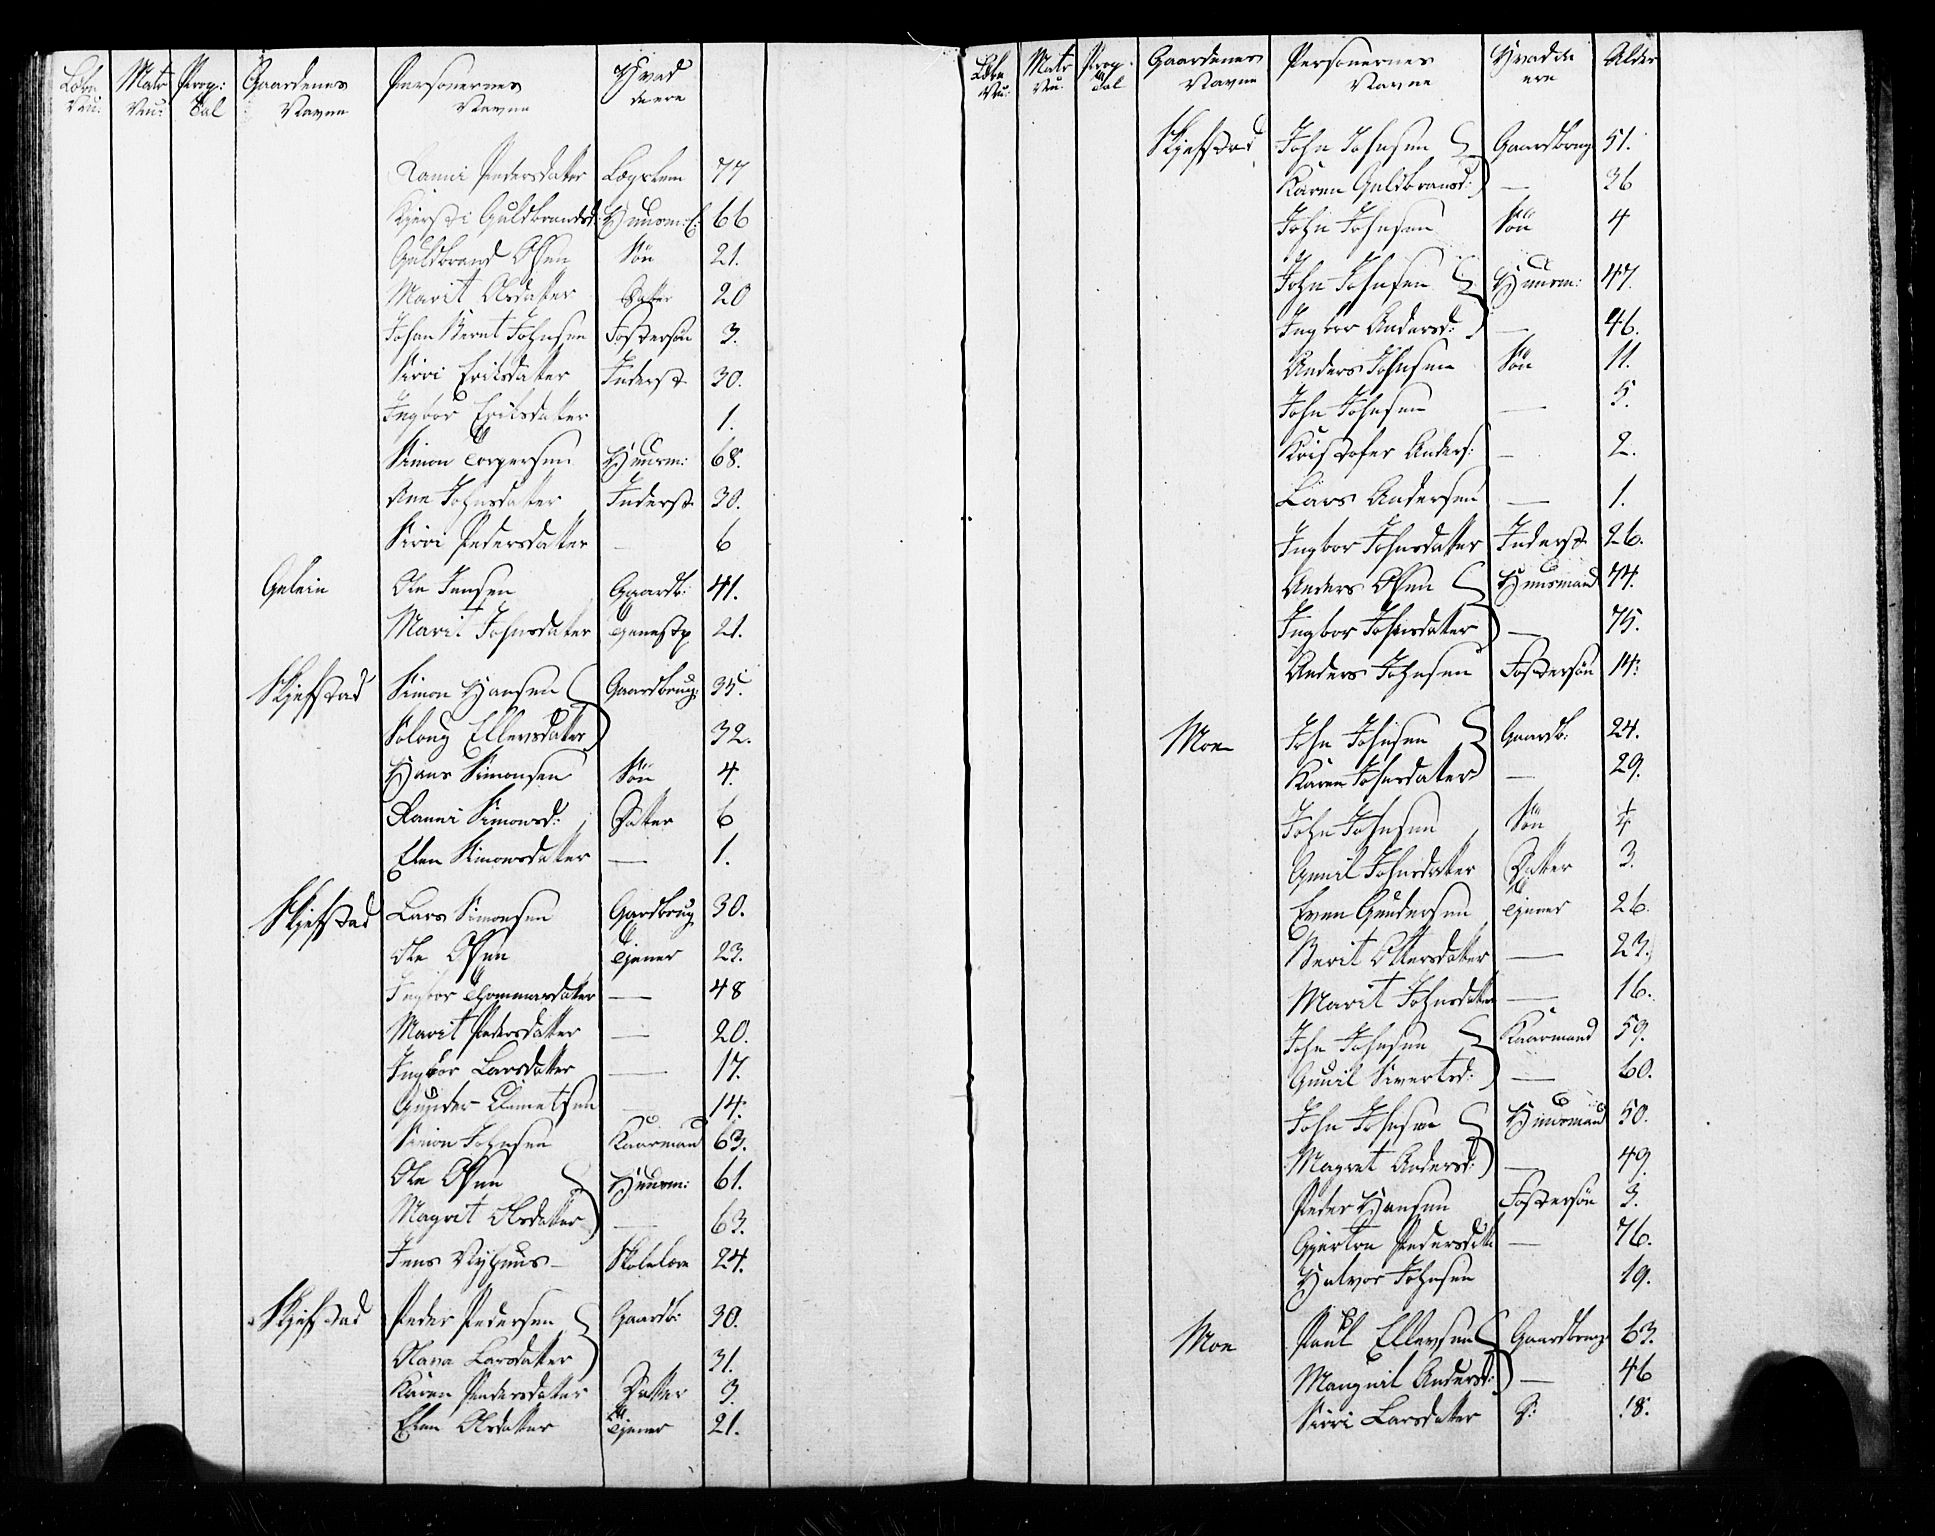 Løbe Matr Prop: Gaardenes Personernes Hvad
Nu: Nu: Tal Navne Navne de ere
Ranni Pedersdatter Lægslem 77
Kjersti Guldbrandsd: Huusm: E: 66
Guldbrand Olsen Søn 21.
Marit Olsdatter Datter 20
Johan Bernt Johnsen Fostersøn 3.
Sirri Eriksdatter Inderst 30.
Ingbor Eriksdatter 1.
Simon Torgersen Huusm: 68.
Ane Johnsdatter Inderst 30.
Sirri Pedersdatter — 6
Gelein Ole Jensen Gaardb: 41.
Marit Johnsdatter Tjenestp 21.
Skjefstad Simon Hansen Gaardbrug: 35.
Soloug Ellevsdatter 32.
Hans Simonsen Søn 4.
Ranni Simonsd: Datter 6
Elen Simonsdatter — 1.
Skjefstad Lars Simonsen Gardbrug 30.
Ole Olsen Tjener 23.
Ingbor Thommasdatter — 48
Marit Pedersdatter — 20.
Ingbor Larsdatter — 17.
Gunder Clemetsen — 14.
Simon Johnsen Kaarmand 63.
Ole Olsen Huusm: 61.
Magrit Olsdatter — 63.
Jens Nyhuus Skolelære 24.
Skjefstad Peder Pedersen Gaardb: 30.
Olava Larsdatter 31.
Karen Pedersdatter Datter 3.
Elen Olsdatter Tjener 21.
Løbe Matr Prop: Gaardenes Personernes Hvad de Alder
Nu: Nu: Tal Navne Navne ere
Skjefstad John Johnsen Gaardbrug 51.
Karen Guldbransd: — 36
John Johnsen Søn 4
John Johnsen Huusm: 47.
Ingbor Andersd: — 46.
Anders Johnsen Søn 11.
John Johnsen — 5.
Kristofer Anders: — 2.
Lars Andersen — 1.
Ingbor Johnsdatter Inderst 26.
Anders Olsen Huusmand 74.
Ingbor Johnsdatter — 75.
Anders Johnsen Fostersøn 14.
Moe John Johnsen Gaardb: 24.
Karen Johnsdatter — 29.
John Johnsen Søn
Gunil Johnsdatter Datter 3.
Even Gundersen Tjener 26.
Berit Ottersdatter — 23.
Marit Johnsdatter — 16.
John Johnsen Kaarmand 59.
Gunil Sivertsd: — 60.
John Johnsen Huusmand 50.
Magret Andersd: — 49.
Peder Hansen Fostersøn 3.
Gjertru Pedersdatt — 76.
Halvor Johnsen 19.
Moe Paul Ellevsen Gaardbrug: 63.
Mangnil Andersd: — 46
Sirri Larsdatter D: 18.